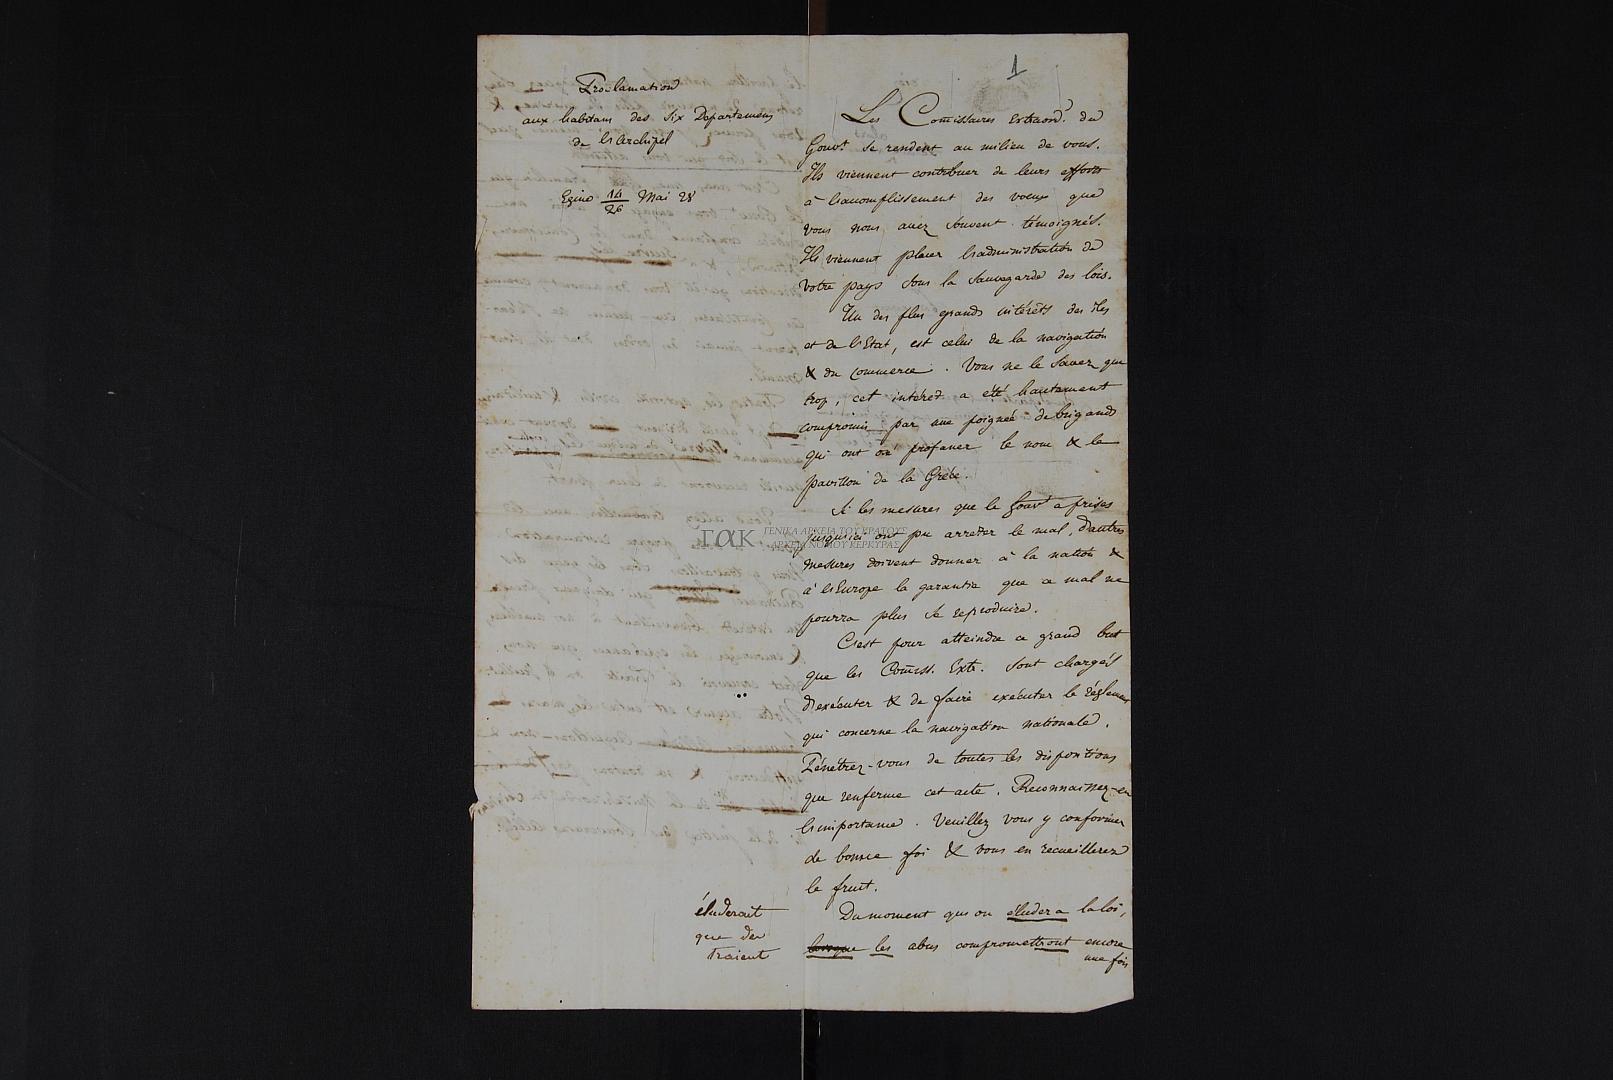 Proclamation
aux habitans des Six Departemens
de l'Archipel
Egine 14/26 Mai 28
1
Les Comissaires Extraord. du
Gouvt. se rendent au milieu de vous.
Ils viennent contribuer de leurs efforts
à l'accomplissement des voeux que
vous nous avez souvent témoignés.
Ils viennent placer l'administration de
votre pays sous la sauvegarde des lois.
Un des plus grands intérêts des Iles
et de l'Etat, est celui de la navigation
& du commerce. Vous ne le savez que
trop, cet intéret a été hautement
compromis par une poignée de brigands
qui ont osé profaner le nom & le
pavillon de la Grèce.
Si les mesures que le Gouvt a prises
jusqu'ici ont pu arrêter le mal, d'autres
mesures doivent donner à la nation &
à l'Europe la garantie que ce mal ne
pourra plus se reproduire.
C'est pour atteindre ce grand but
que les Comiss. Extr. sont chargés
d'exécuter & de faire exécuter le réglement
qui concerne la navigation nationale.
Pénétrez-vous de toutes les dispositions
que renferme cet acte. Reconnaissez-en
l'importance. Veuillez vous y conformer
de bonne foi & vous en recueillerez
le fruit.
Du moment qu'on éludera la loi,
lorsque les abus compromettront encore
une fois
éluderait
que des
traient
ΓΑΚ ΓΕΝΙΚΑ ΑΡΧΕΙΑ ΤΟΥ ΚΡΑΤΟΥΣ
ΑΡΧΕΙΑ ΝΟΜΟΥ ΚΕΡΚΥΡΑΣ